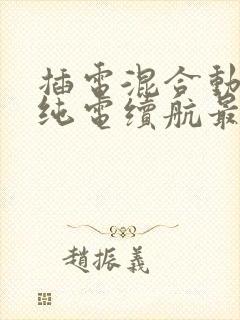 插電混合動
纯電續航最
趙振義